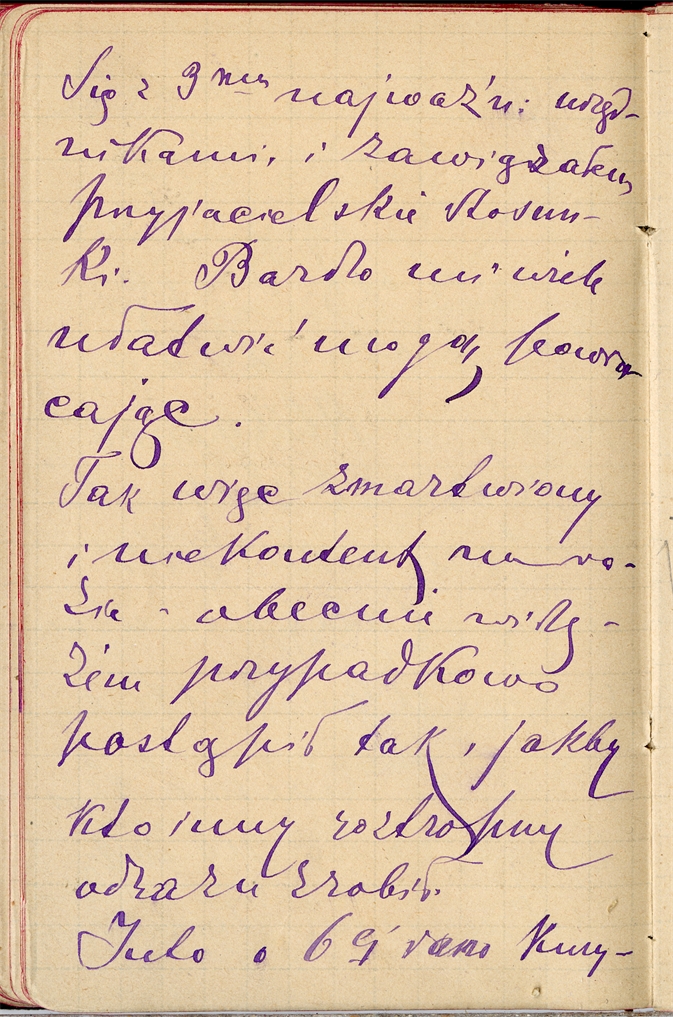 Się z 3ma najważn: urzęd-
nikami, i zawiązałem
przyjacielskie stosun-
ki. Bardzo mi wiele
ułatwić mogą, powra-
cając.
Tak więc zmartwiony
i niekontent na ra-
zie - obecnie widzę
żem przypadkowo
postąpił tak, jakby
kto inny roztropny
odrazu zrobił.
Juto o 6ej rano Kury-